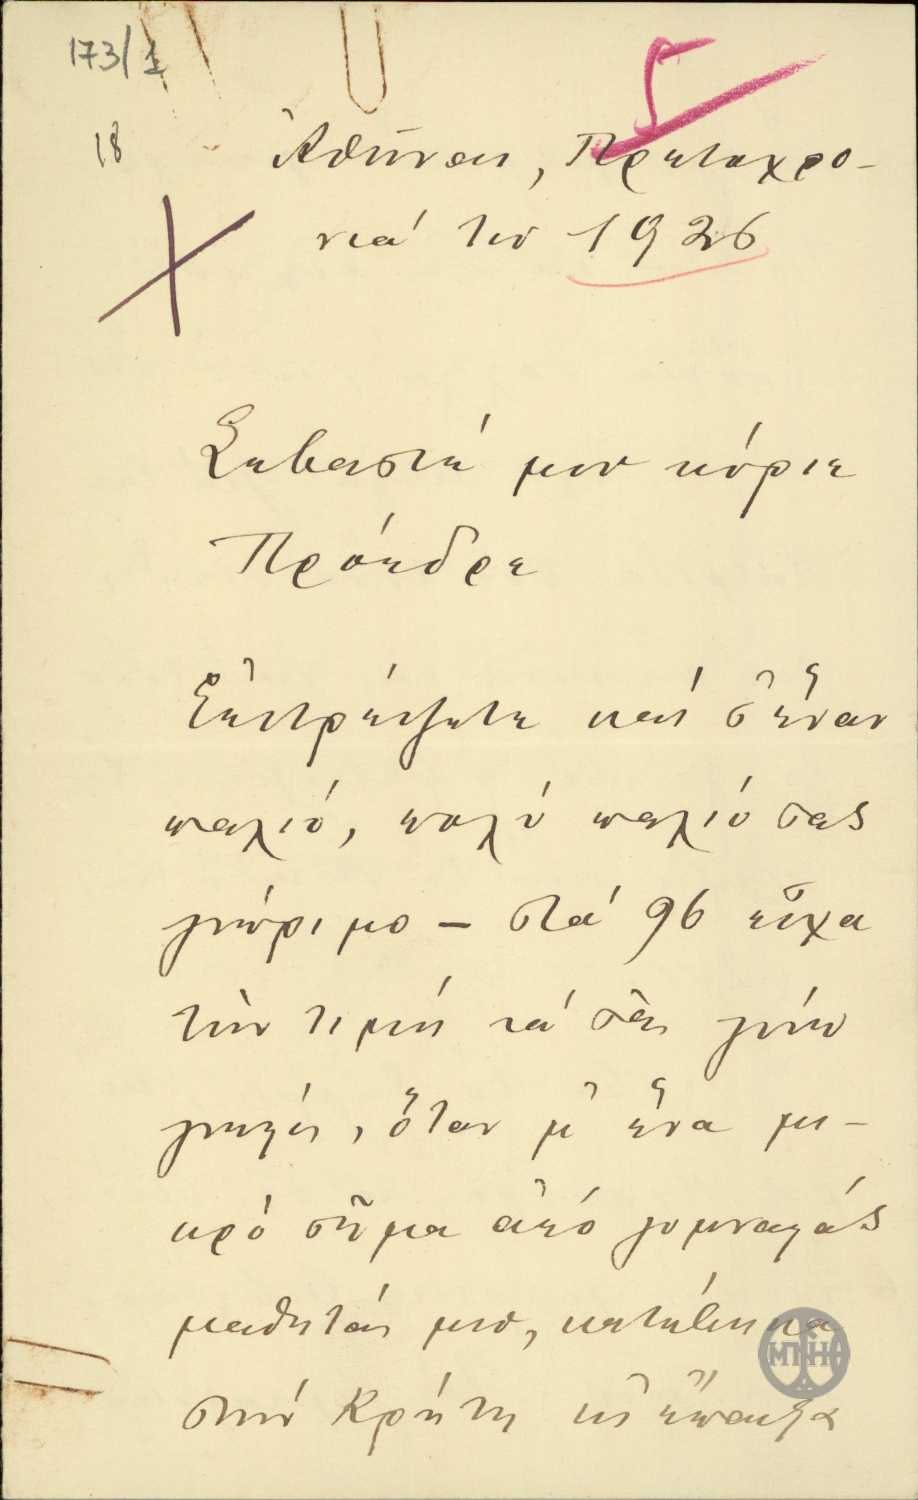 173/1
5
18
Ἀθήναι, Πρωτοχρο-
νιά του 1926
Σεβαστέ μου κύριε
Πρόεδρε
Ἐπιτρέψετε καί σ' ἕναν
παλιό, πολύ παλιό σας
γνώριμο — στά 96 εἶχα
τήν τιμή νά σᾶς
, ὅταν μ' ἕνα μι-
κρό σῶμα ἀπό γυμναστάς
μαθητάς μου, κατέβηκα
στήν Κρήτη κ'
ΜΠΗ